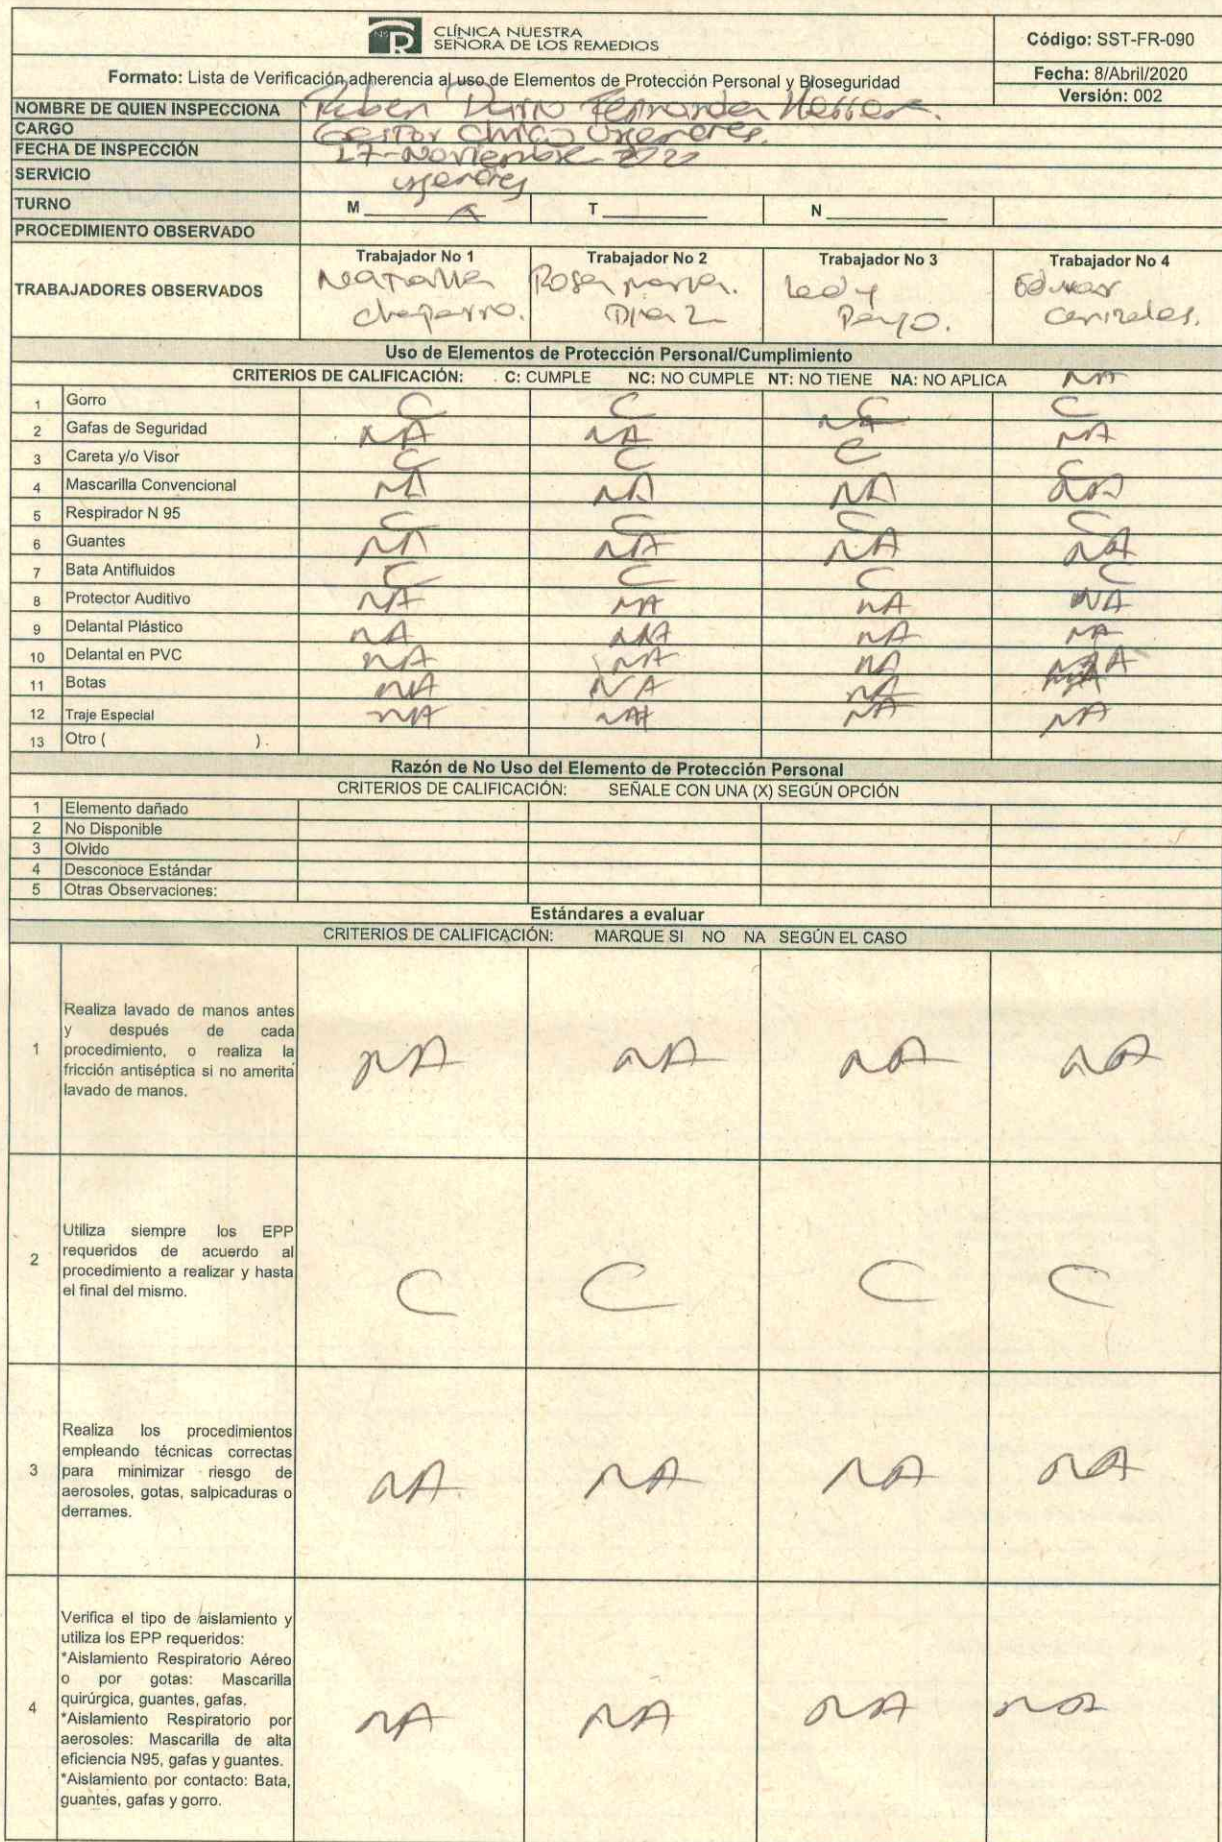 CLÍNICA NUESTRA
SEÑORA DE LOS REMEDIOS
Código: SST-FR-090
Formato: Lista de Verificación adherencia al uso de Elementos de Protección Personal y Bioseguridad
Fecha: 8/Abril/2020
Versión: 002
NOMBRE DE QUIEN INSPECCIONA Ruben Dario Fernandez
CARGO Gestor Clinico
FECHA DE INSPECCIÓN 17-Noviembre
SERVICIO
TURNO M T N
PROCEDIMIENTO OBSERVADO
TRABAJADORES OBSERVADOS
Trabajador No 1 Trabajador No 2 Trabajador No 3 Trabajador No 4
Rosa Maria. Ledy
chaparro. Diaz canizales.
Uso de Elementos de Protección Personal/Cumplimiento
CRITERIOS DE CALIFICACIÓN: C: CUMPLE NC: NO CUMPLE NT: NO TIENE NA: NO APLICA NA
1 Gorro C C C C
2 Gafas de Seguridad NA NA NA NA
3 Careta y/o Visor C C C C
4 Mascarilla Convencional NA NA NA NA
5 Respirador N 95 C C C C
6 Guantes NA NA NA NA
7 Bata Antifluidos C C C C
8 Protector Auditivo NA NA NA NA
9 Delantal Plástico NA NA NA NA
10 Delantal en PVC NA NA NA NA
11 Botas NA NA NA NA
12 Traje Especial NA NA NA NA
13 Otro ( ).
Razón de No Uso del Elemento de Protección Personal
CRITERIOS DE CALIFICACIÓN: SEÑALE CON UNA (X) SEGÚN OPCIÓN
1 Elemento dañado
2 No Disponible
3 Olvido
4 Desconoce Estándar
5 Otras Observaciones:
Estándares a evaluar
CRITERIOS DE CALIFICACIÓN: MARQUE SI NO NA SEGÚN EL CASO
1
Realiza lavado de manos antes
y después de cada
procedimiento, o realiza la
fricción antiséptica si no amerita
lavado de manos.
NA NA NA NA
2
Utiliza siempre los EPP
requeridos de acuerdo al
procedimiento a realizar y hasta
el final del mismo.
C C C C
3
Realiza los procedimientos
empleando técnicas correctas
para minimizar riesgo de
aerosoles, gotas, salpicaduras o
derrames.
NA NA NA NA
4
Verifica el tipo de aislamiento y
utiliza los EPP requeridos:
*Aislamiento Respiratorio Aéreo
o por gotas: Mascarilla
quirúrgica, guantes, gafas.
*Aislamiento Respiratorio por
aerosoles: Mascarilla de alta
eficiencia N95, gafas y guantes.
*Aislamiento por contacto: Bata,
guantes, gafas y gorro.
NA NA NA NA